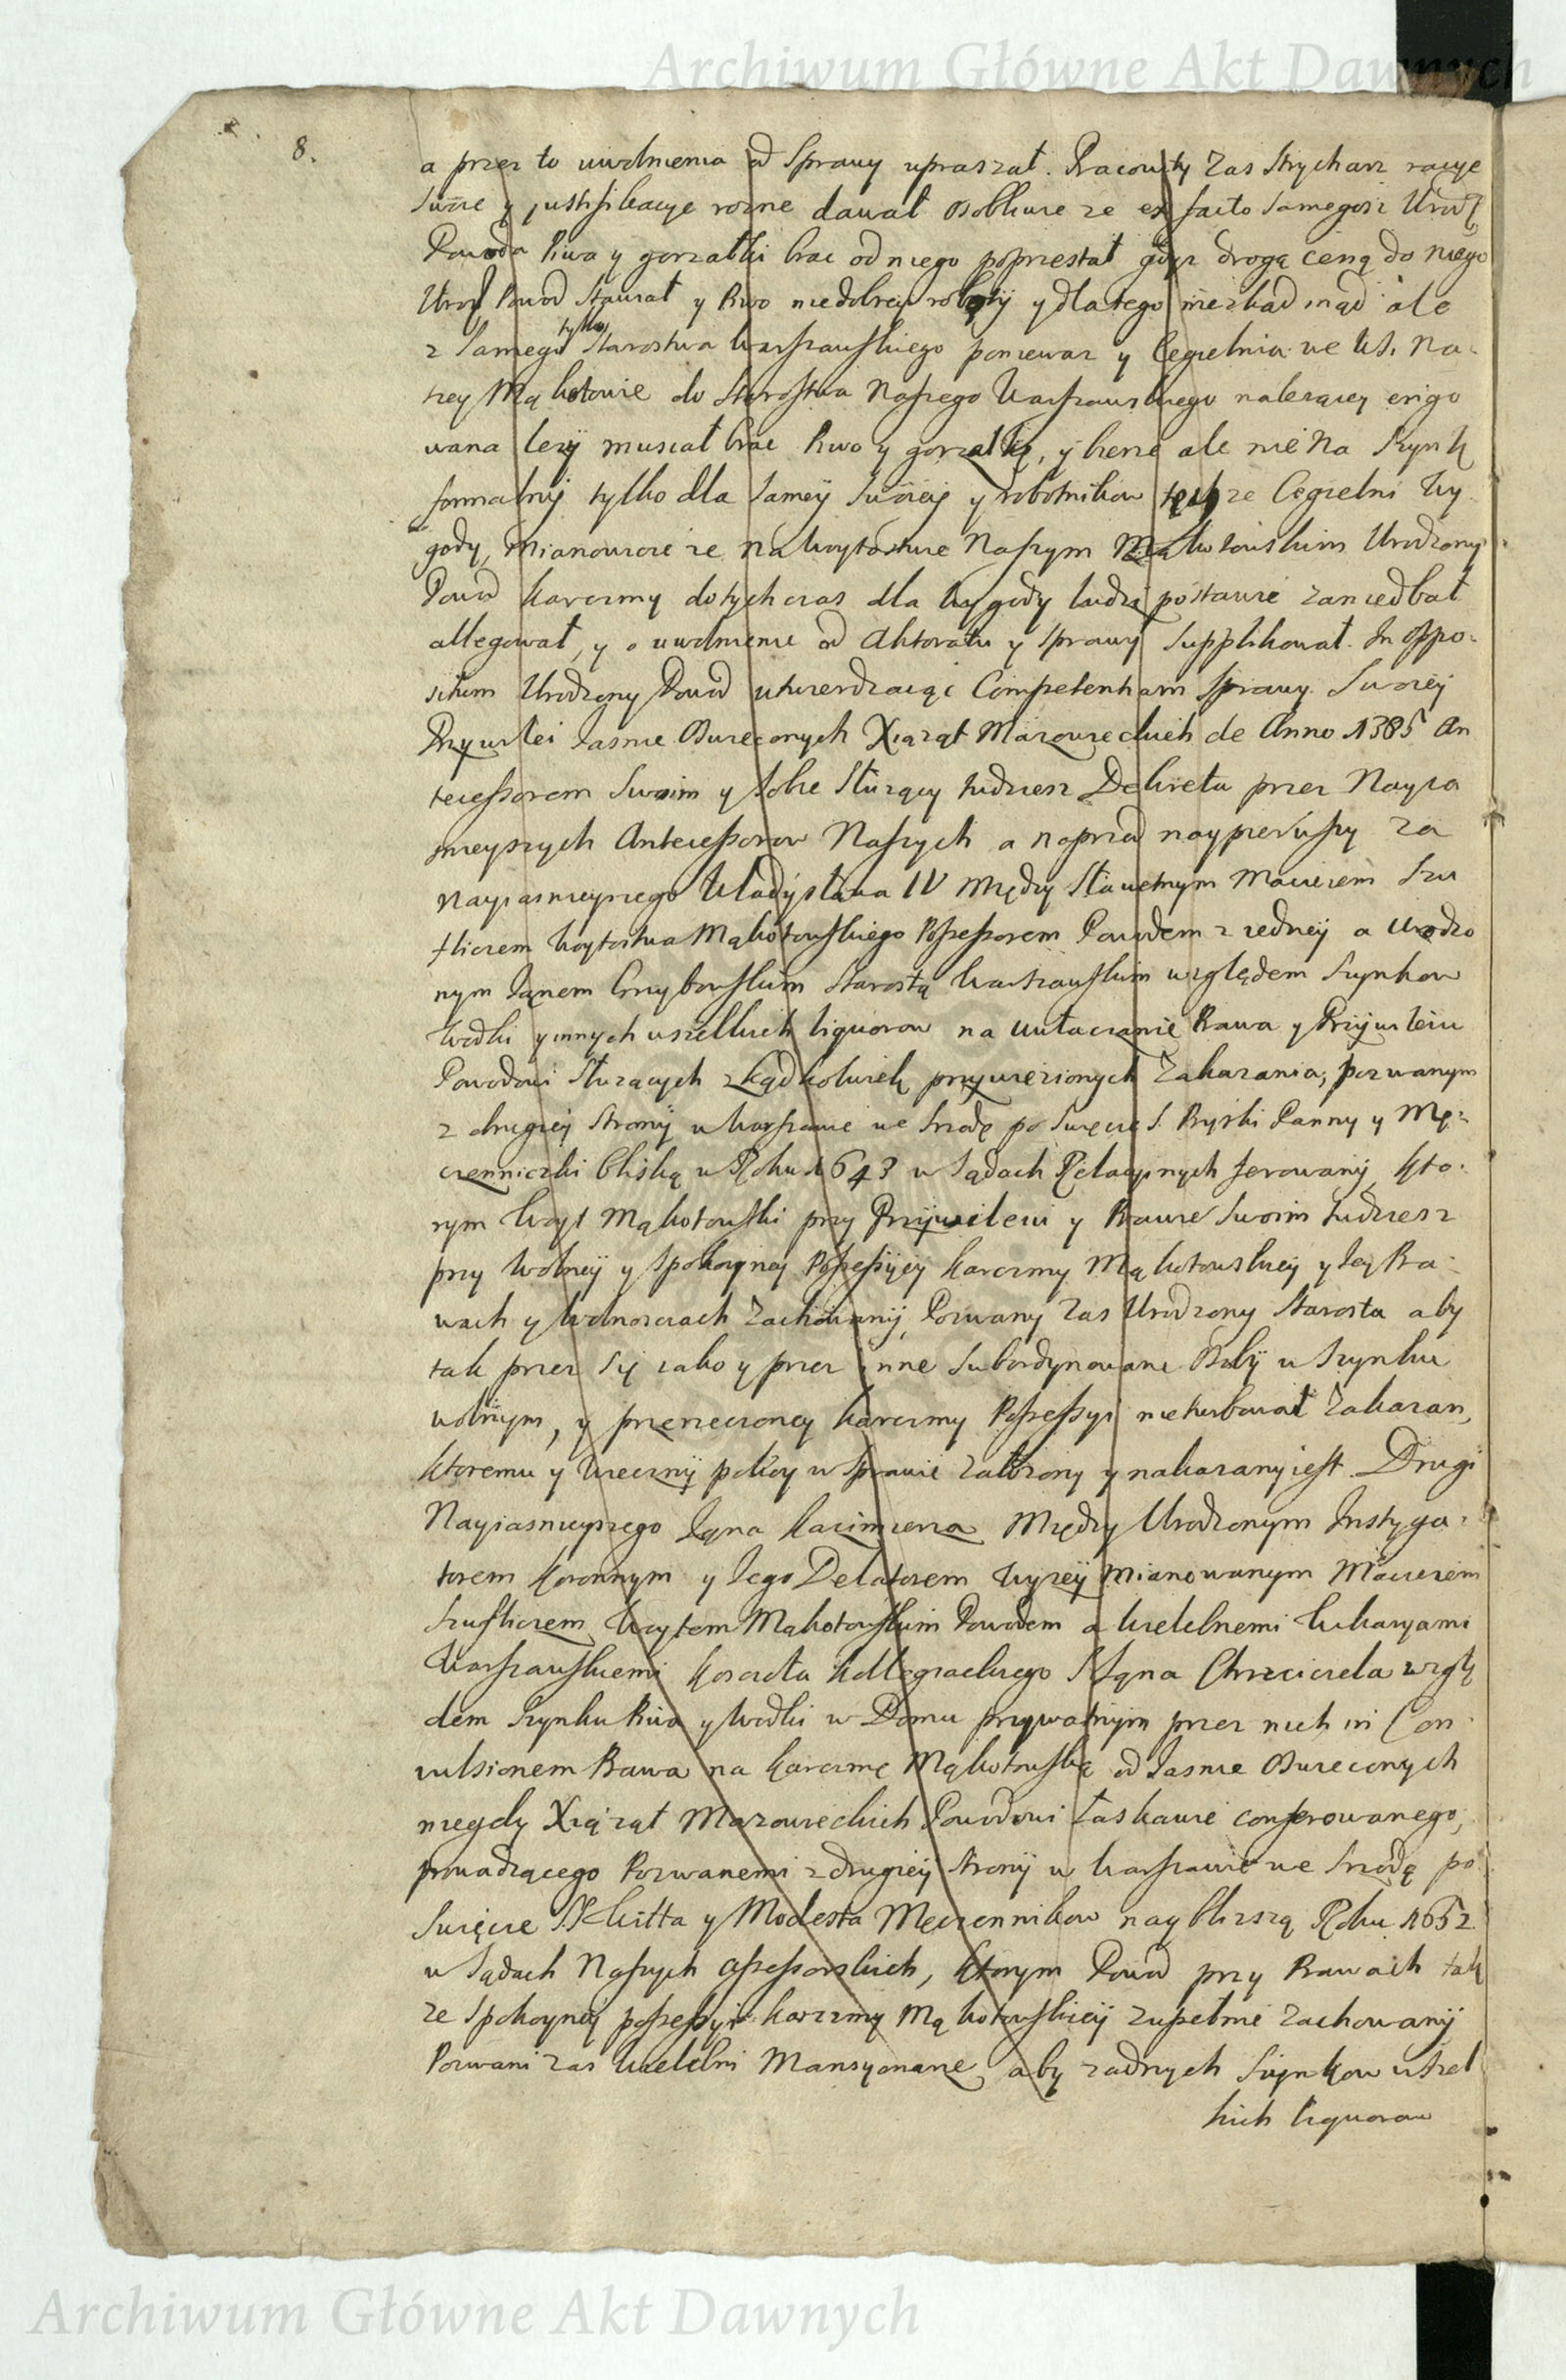 Archiwum Główne Akt Dawnych
8.
a przez to uwolnienia od Sprawy upraszał. Pracowity zas Strycharz racye
Swoie y justifikacye rozne dawał osobliwie ze ex facto samegosz Urodz
Powoda Piwa y gorzałki brac od niego poprzestał gdysz drogą ceną do niego
Urodz Powod stawiał y Piwo niedobrey roboty y dlatego niezkad inąd ale
z samego tylko Starostwa Warszawskiego poniewaz y Cegielnia we Wsi Na-
szey Mąkotowie do Starostwa Naszego Warszawskiego nalezącey erigo
wana lezy musiał brac Piwo y gorzałkę, y bierze ale nie na Szynk
formalny tylko dla samey swoiey y robotnikow tychze Cegielni wy
gody, mianowicie ze na Woytostwie Naszym Mąkotowskim Urodzony
Powod karczmy dotychczas dla wygody ludzi postawic zaniedbał
allegował, y o uwolnienie od Aktoratu y sprawy supplikował. In oppo-
situm Urodzony Powod utwierdzaiąc Competentiam sprawy Swoiey
Przywilei Jasnie Oswieconych Xiąząt Mazowieckich de Anno 1385 An
tecessorom Swoim y sobie słuzący tudziesz Dekreta przez Nayia
snieyszych Antecessorow Naszych a naprzod naypierwszy za
Nayiasnieyszego Władysława IV między Sławetnym Macieiem Szu
flierem Woytostwa Mąkotowskiego Possessorem Powodem z iedney a Urodzo
nym Janem Grzybowskim Starostą Warszawskim względem Szynkow
Wodki y innych wszelkich liquorow na uwłaczanie Prawa y Przywileiu
Powodowi słuzących zkądkolwiek przywiezionych zakazania, pozwanym
z drugiey strony w Warszawie we Srzodę po Swięcie S. Pryski Panny y Mę-
czenniczki bliską w Roku 1643 w Sądach Relacyinych ferowany, kto-
rym Woyt Mąkotowski przy Przywileiu y Prawie Swoim tudziesz
przy Wolney y spokoyney Possessyiey karczmy Mąkotowskiey y Jey Pra-
wach y Wolnosciach zachowany, Pozwany zas Urodzony Starosta aby
tak przez się iako y przez inne subordynowane Osoby w szynku
wolnym, y przerzeczoney karczmy Possessyi nieturbował zakazan,
ktoremu y wieczny pokoy w sprawie załozony y nakazany iest. Drugi
Nayiasnieyszego Jana Kazimierza Między Urodzonym Instyga-
torem Koronnym y Jego Delatorem wyzey mianowanym Macieiem
Szuflierem Woytem Mąkotowskim Powodem a Wielebnemi Wikaryami
Warszawskiemi Koscioła Kollegiackiego S Jana Chrzciciela wzglę
dem Szynku Piwa y Wodki w Domu prywatnym przez nich in Con-
vulsionem Prawa na karczmę Mąkotowską od Jasnie Oswieconych
niegdy Xiąząt Mazowieckich Powodowi łaskawie conferowanego,
prowadzącego Pozwanemi z drugiey strony w Warszawie we Srzodę po
Swięcie SS Witta y Modesta Męczennikow naybliszszą Roku 1652
w Sądach Naszych Assessorskich, ktorym Powod przy Prawach tak
ze spokoyney possessyi karczmy Mąkotowskiey zupełnie zachowany
Pozwani zas Wielebni Mansyonarze aby zadnych Szynkow wszel
kich liquorow
Archiwum Główne Akt Dawnych